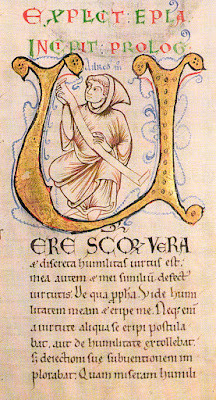 EXPLICT: EPLA
INCIPIT: PROLOG
U
ERE SCOR· VERA
& discreta humilitas uirtus est.
mea autem & mei similiu defect'
uirtutis. De qua ppha. Vide humi
litatem meam & eripe me. Neq; eni
a uirtute aliqua se eripi postula
bat, aut de humilitate extollebat.
s; deiectioni sue subuentionem im
plorabat. Quam miseram humili